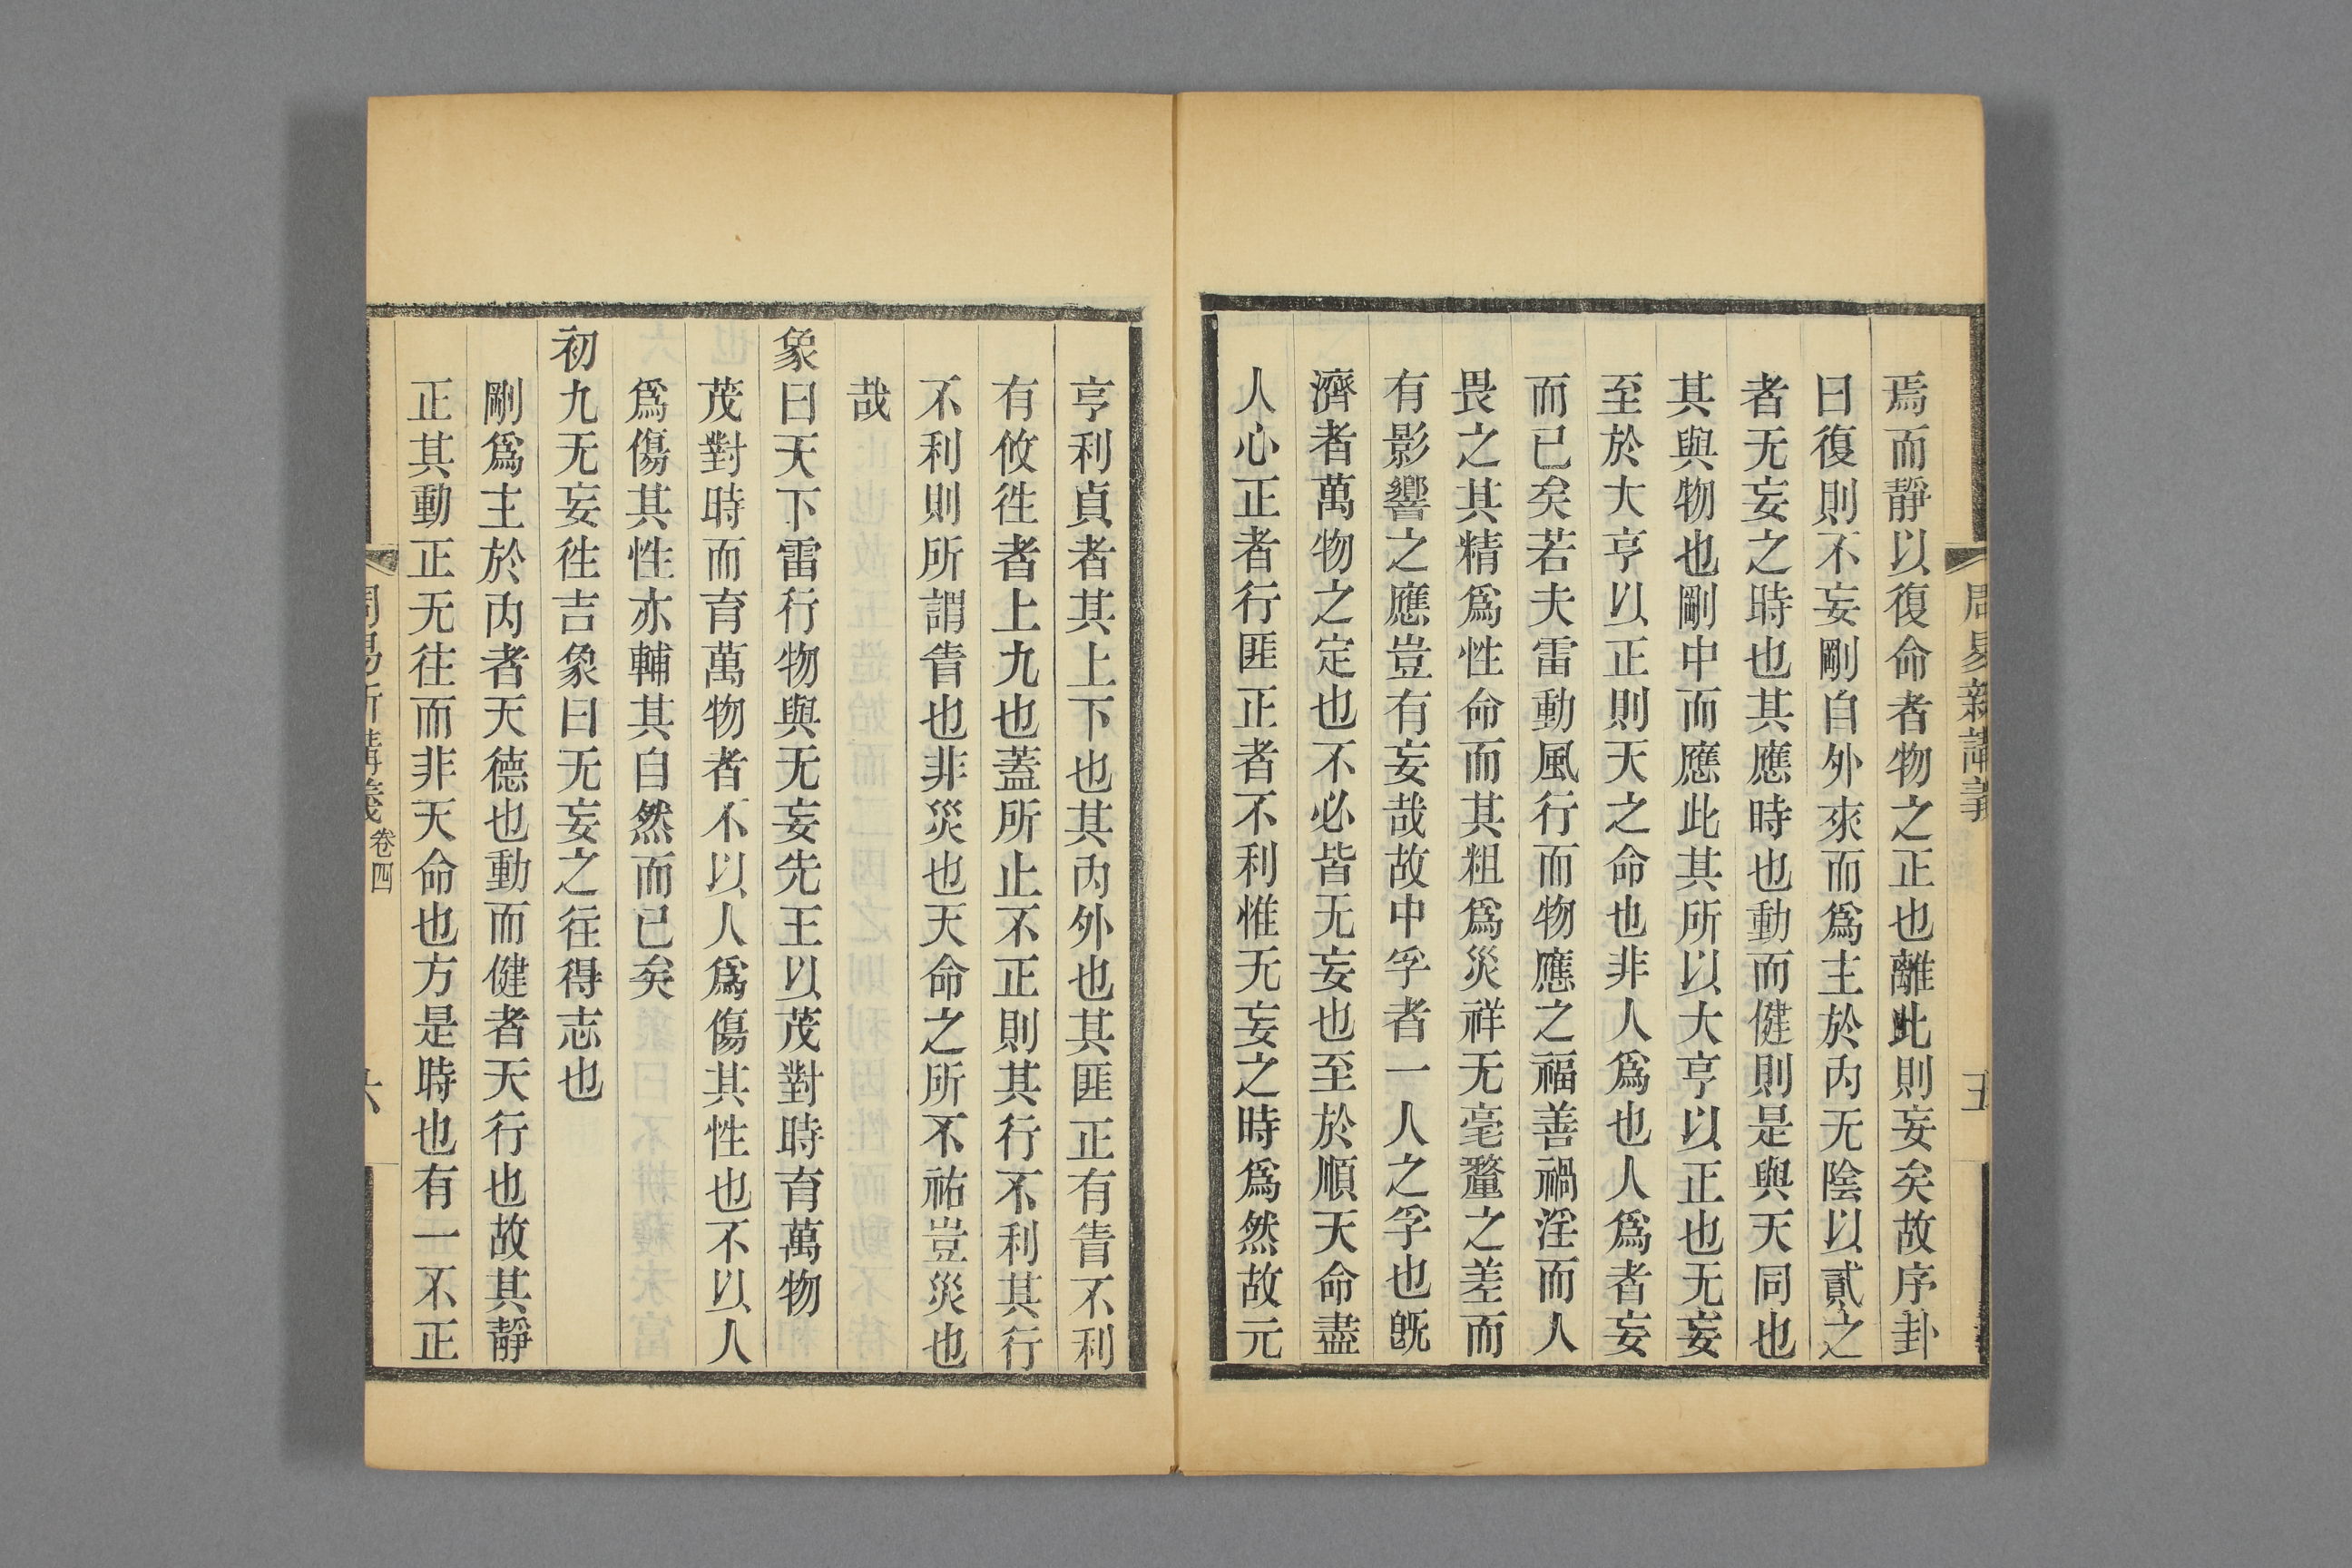 周易新講義
五
焉而靜以復命者物之正也離此則妄矣故序卦
曰復則不妄剛自外來而爲主於內无陰以貳之
者无妄之時也其應時也動而健則是與天同也
其與物也剛中而應此其所以大亨以正也无妄
至於大亨以正則天之命也非人爲也人爲者妄
而已矣若夫雷動風行而物應之福善禍淫而人
畏之其精爲性命而其粗爲災祥无毫釐之差而
有影響之應豈有妄哉故中孚者一人之孚也旣
濟者萬物之定也不必皆无妄也至於順天命盡
人心正者行匪正者不利惟无妄之時爲然故元
亨利貞者其上下也其內外也其匪正有眚不利
有攸徃者上九也蓋所止不正則其行不利其行
不利則所謂眚也非災也天命之所不祐豈災也
哉
象曰天下雷行物與无妄先王以茂對時育萬物
茂對時而育萬物者不以人爲傷其性也不以人
爲傷其性亦輔其自然而已矣
初九无妄徃吉象曰无妄之往得志也
剛爲主於內者天德也動而健者天行也故其靜
正其動正无往而非天命也方是時也有一不正
周易新講義 卷四
六